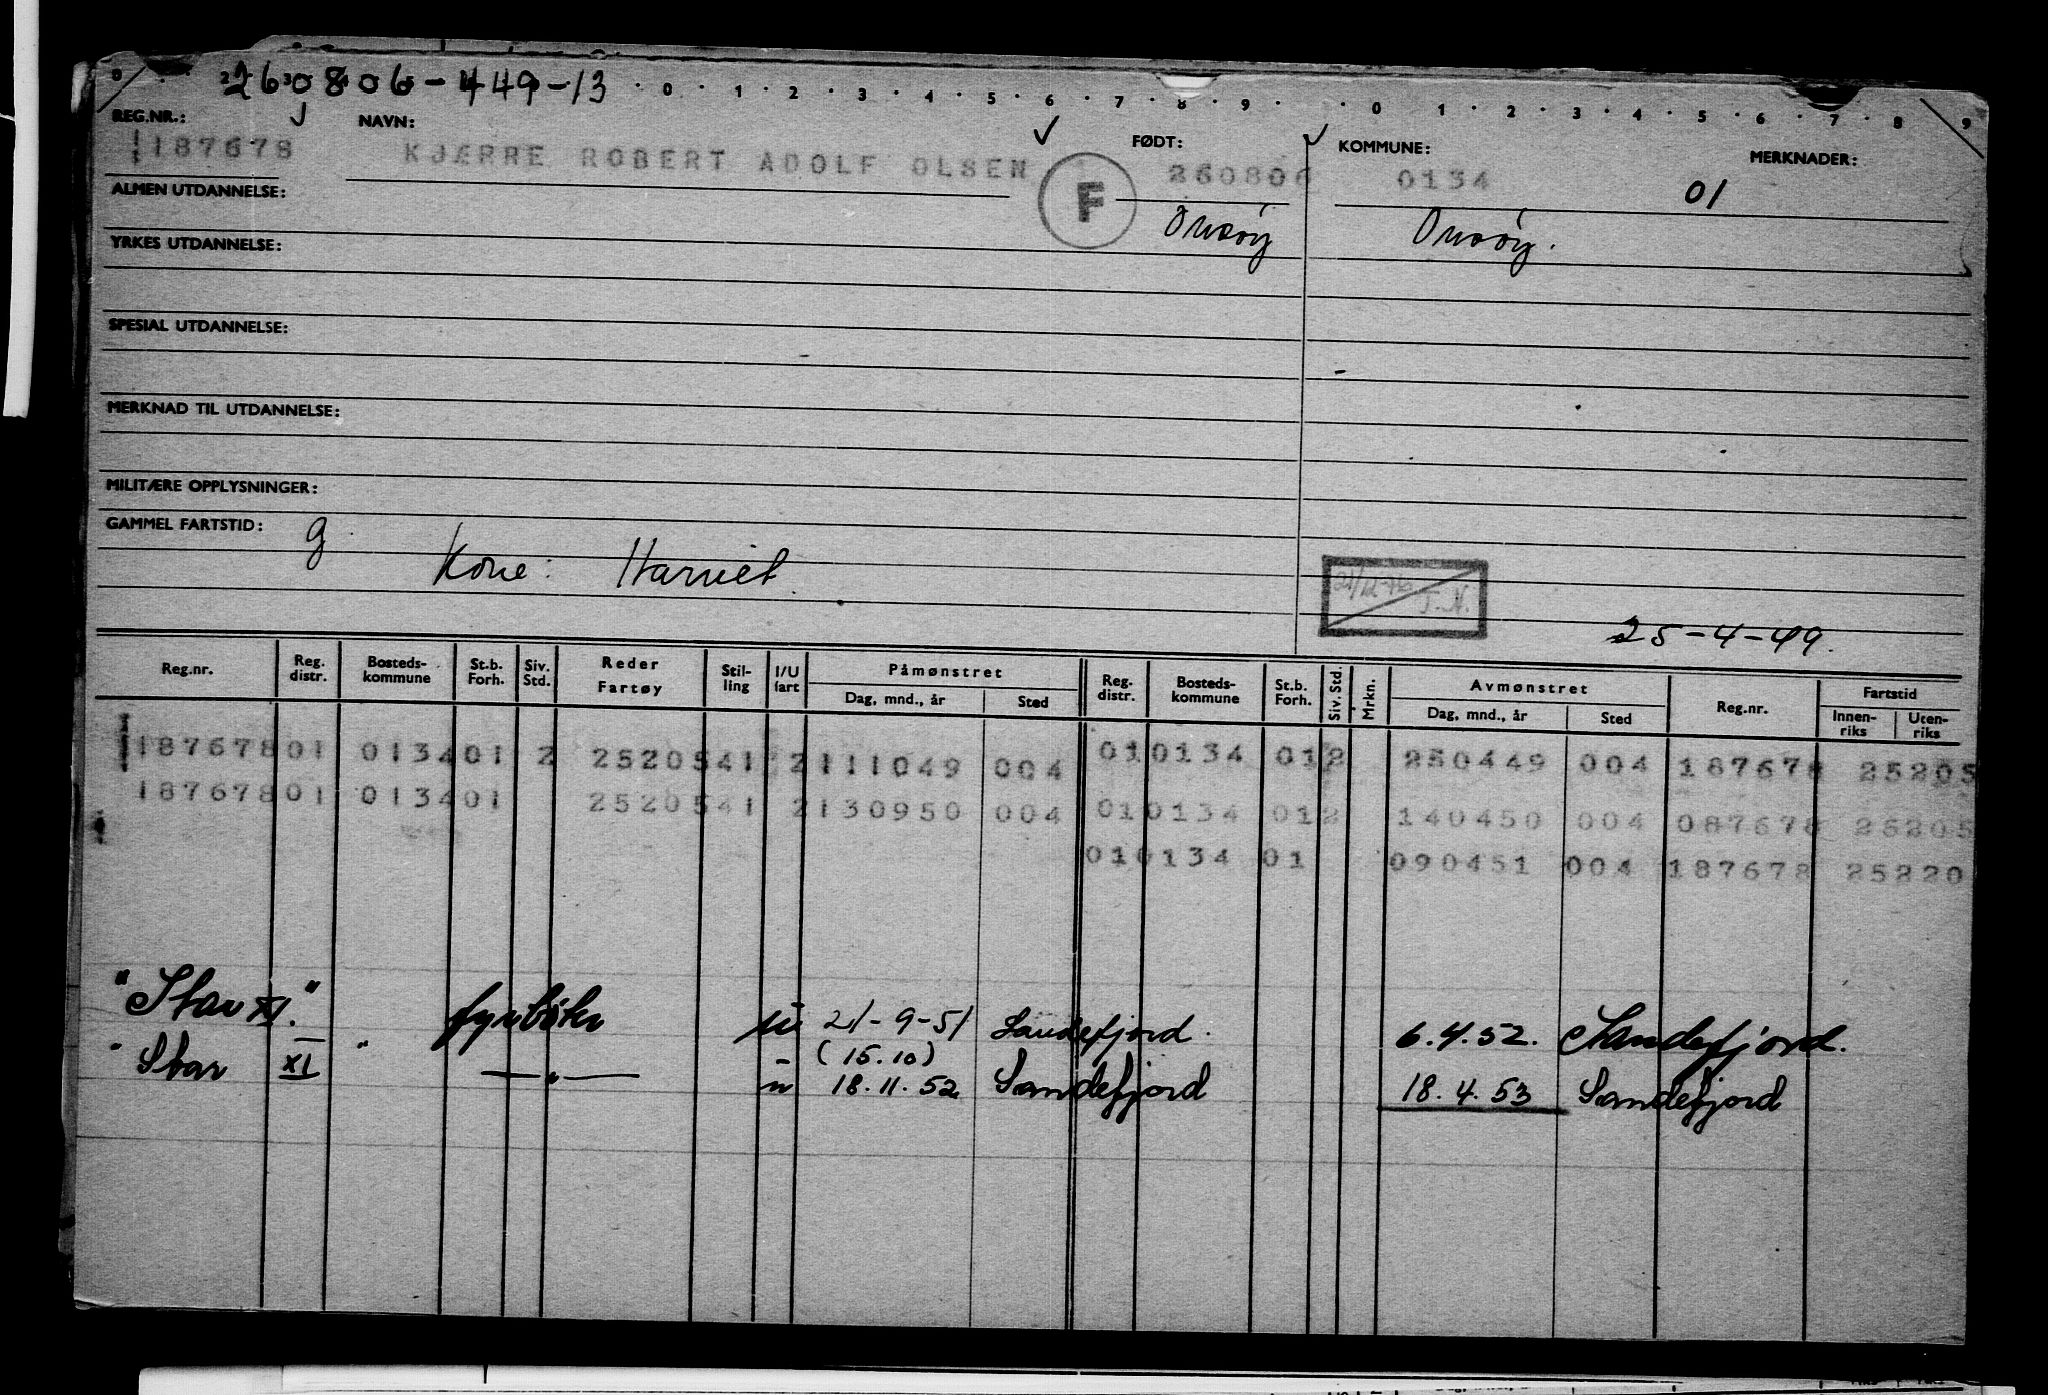 260806-449-13
0 1 2 3 4 5 6 7 8 9 0 1 2 3 4 5 6 7 8 9
REG.NR.: NAVN: FØDT: KOMMUNE: MERKNADER:
187678 KJÆRRE ROBERT ADOLF OLSEN F 260806 0134 01
ALMEN UTDANNELSE:
Onsøy Onsøy.
YRKES UTDANNELSE:
SPESIAL UTDANNELSE:
MERKNAD TIL UTDANNELSE:
MILITÆRE OPPLYSNINGER:
GAMMEL FARTSTID: g
Kone: Harriet
T.N.
25-4-49.
Reg.nr. Reg. distr. Bosteds- kommune St.b. Forh. Siv. Std. Reder Fartøy Stil- ling I/U fart Påmønstret Reg. distr. Bosteds- kommune St.b. Forh. Siv. Std. Mrkn. Avmønstret Reg.nr. Fartstid
Dag, mnd., år Sted Dag, mnd., år Sted Innen- riks Uten- riks
187678 01 0134 01 2 25205 41 2 111049 004 01 0134 01 2 250449 004 187678 25205
187678 01 0134 01 25205 41 2 130950 004 01 0134 01 2 140450 004 087678 25205
01 0134 01 090451 004 187678 25220
"Star XI." fyrbøter u 21-9-51 Sandefjord. 6.4.52. Sandefjord.
(15.10)
"Star XI" —"— u 18.11.52 Sandefjord 18.4.53 Sandefjord